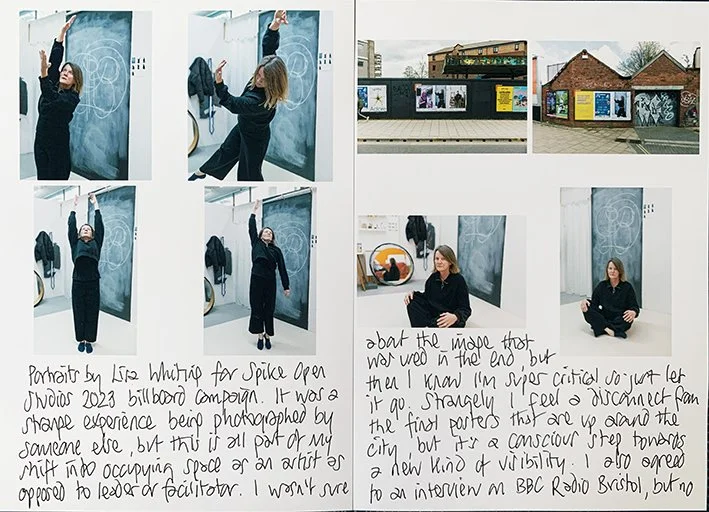 Portraits by Lisa Whiting for Spike Open
Studios 2023 billboard campaign. It was a
strange experience being photographed by
someone else, but this is all part of my
shift into occupying space as an artist as
opposed to leader or facilitator. I wasn't sure
about the image that
was used in the end, but
then I know I'm super critical so just let
it go. Strangely I feel a disconnect from
the final posters that are up around the
city, but it's a conscious step towards
a new kind of visibility. I also agreed
to an interview on BBC Radio Bristol, but no